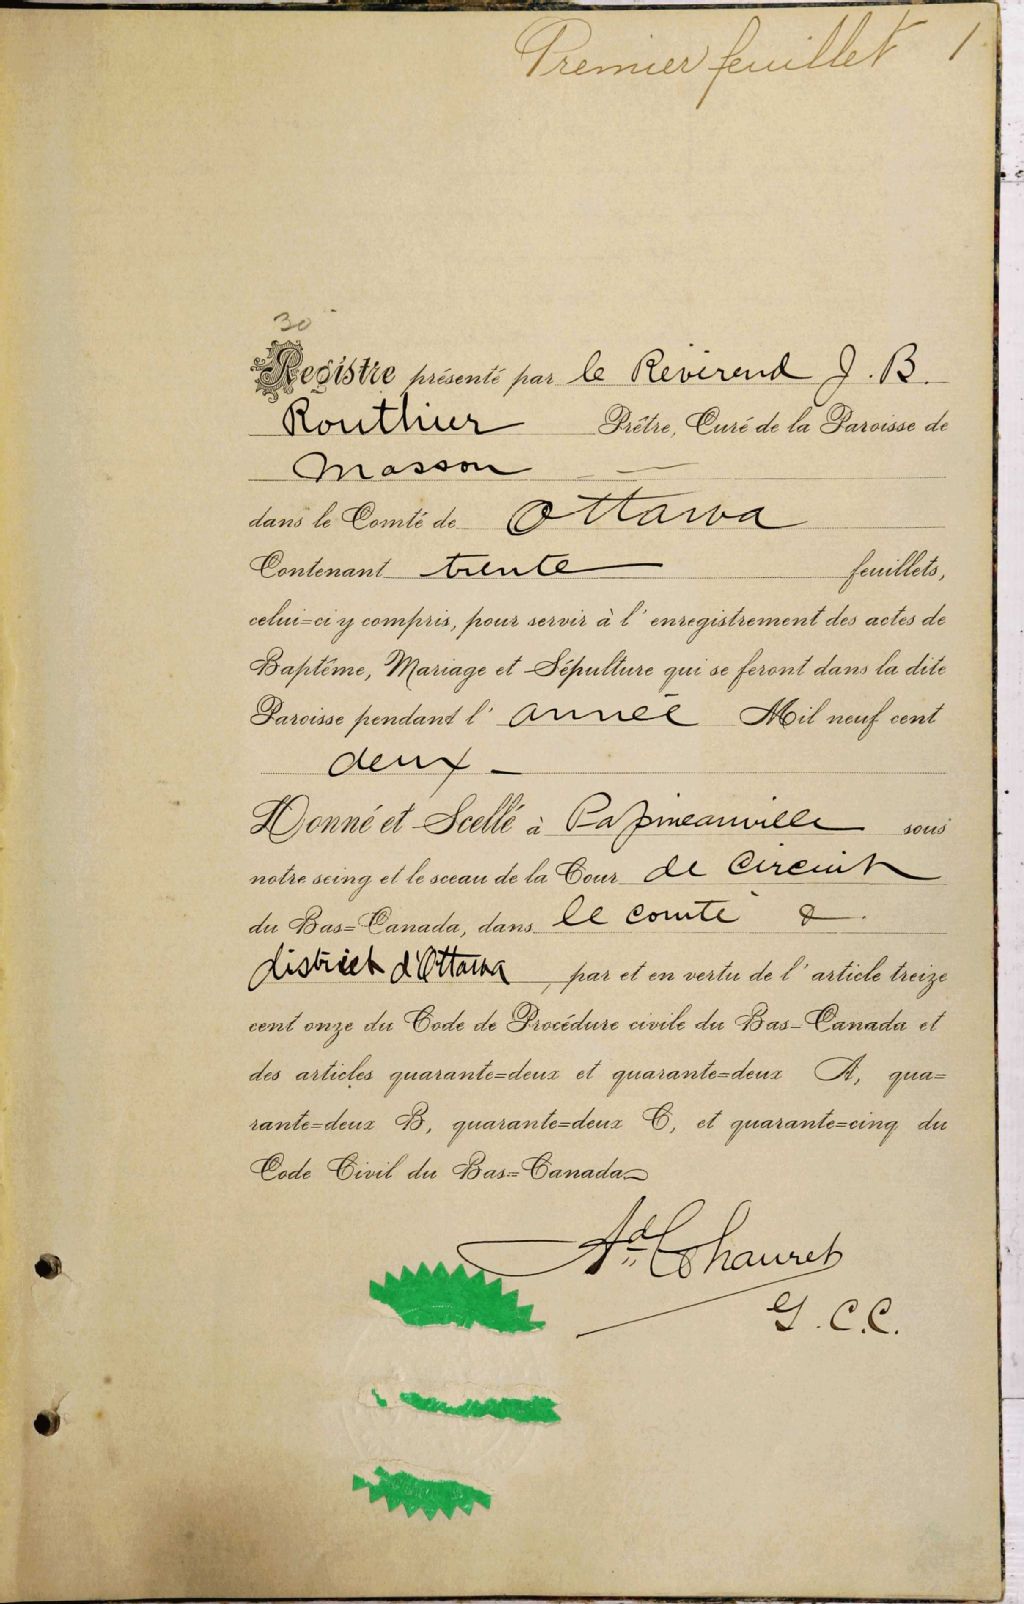 Premier feuillet 1
30
Registre présenté par le Révérend J. B.
Routhier Prêtre, Curé de la Paroisse de
Masson
dans le Comté de Ottawa
Contenant trente feuillets,
celui=ci y compris, pour servir à l'enregistrement des actes de
Baptême, Mariage et Sépulture qui se feront dans la dite
Paroisse pendant l'année Mil neuf cent
deux
Donné et Scellé à Papineauville sous
notre seing et le sceau de la Cour de Circuit
du Bas=Canada, dans le comté &
district d'Ottawa, par et en vertu de l'article treize
cent onze du Code de Procédure civile du Bas-Canada et
des articles quarante=deux et quarante=deux A, qua=
rante=deux B, quarante=deux C, et quarante=cinq du
Code Civil du Bas=Canada
Ad. Chauret
G. C. C.